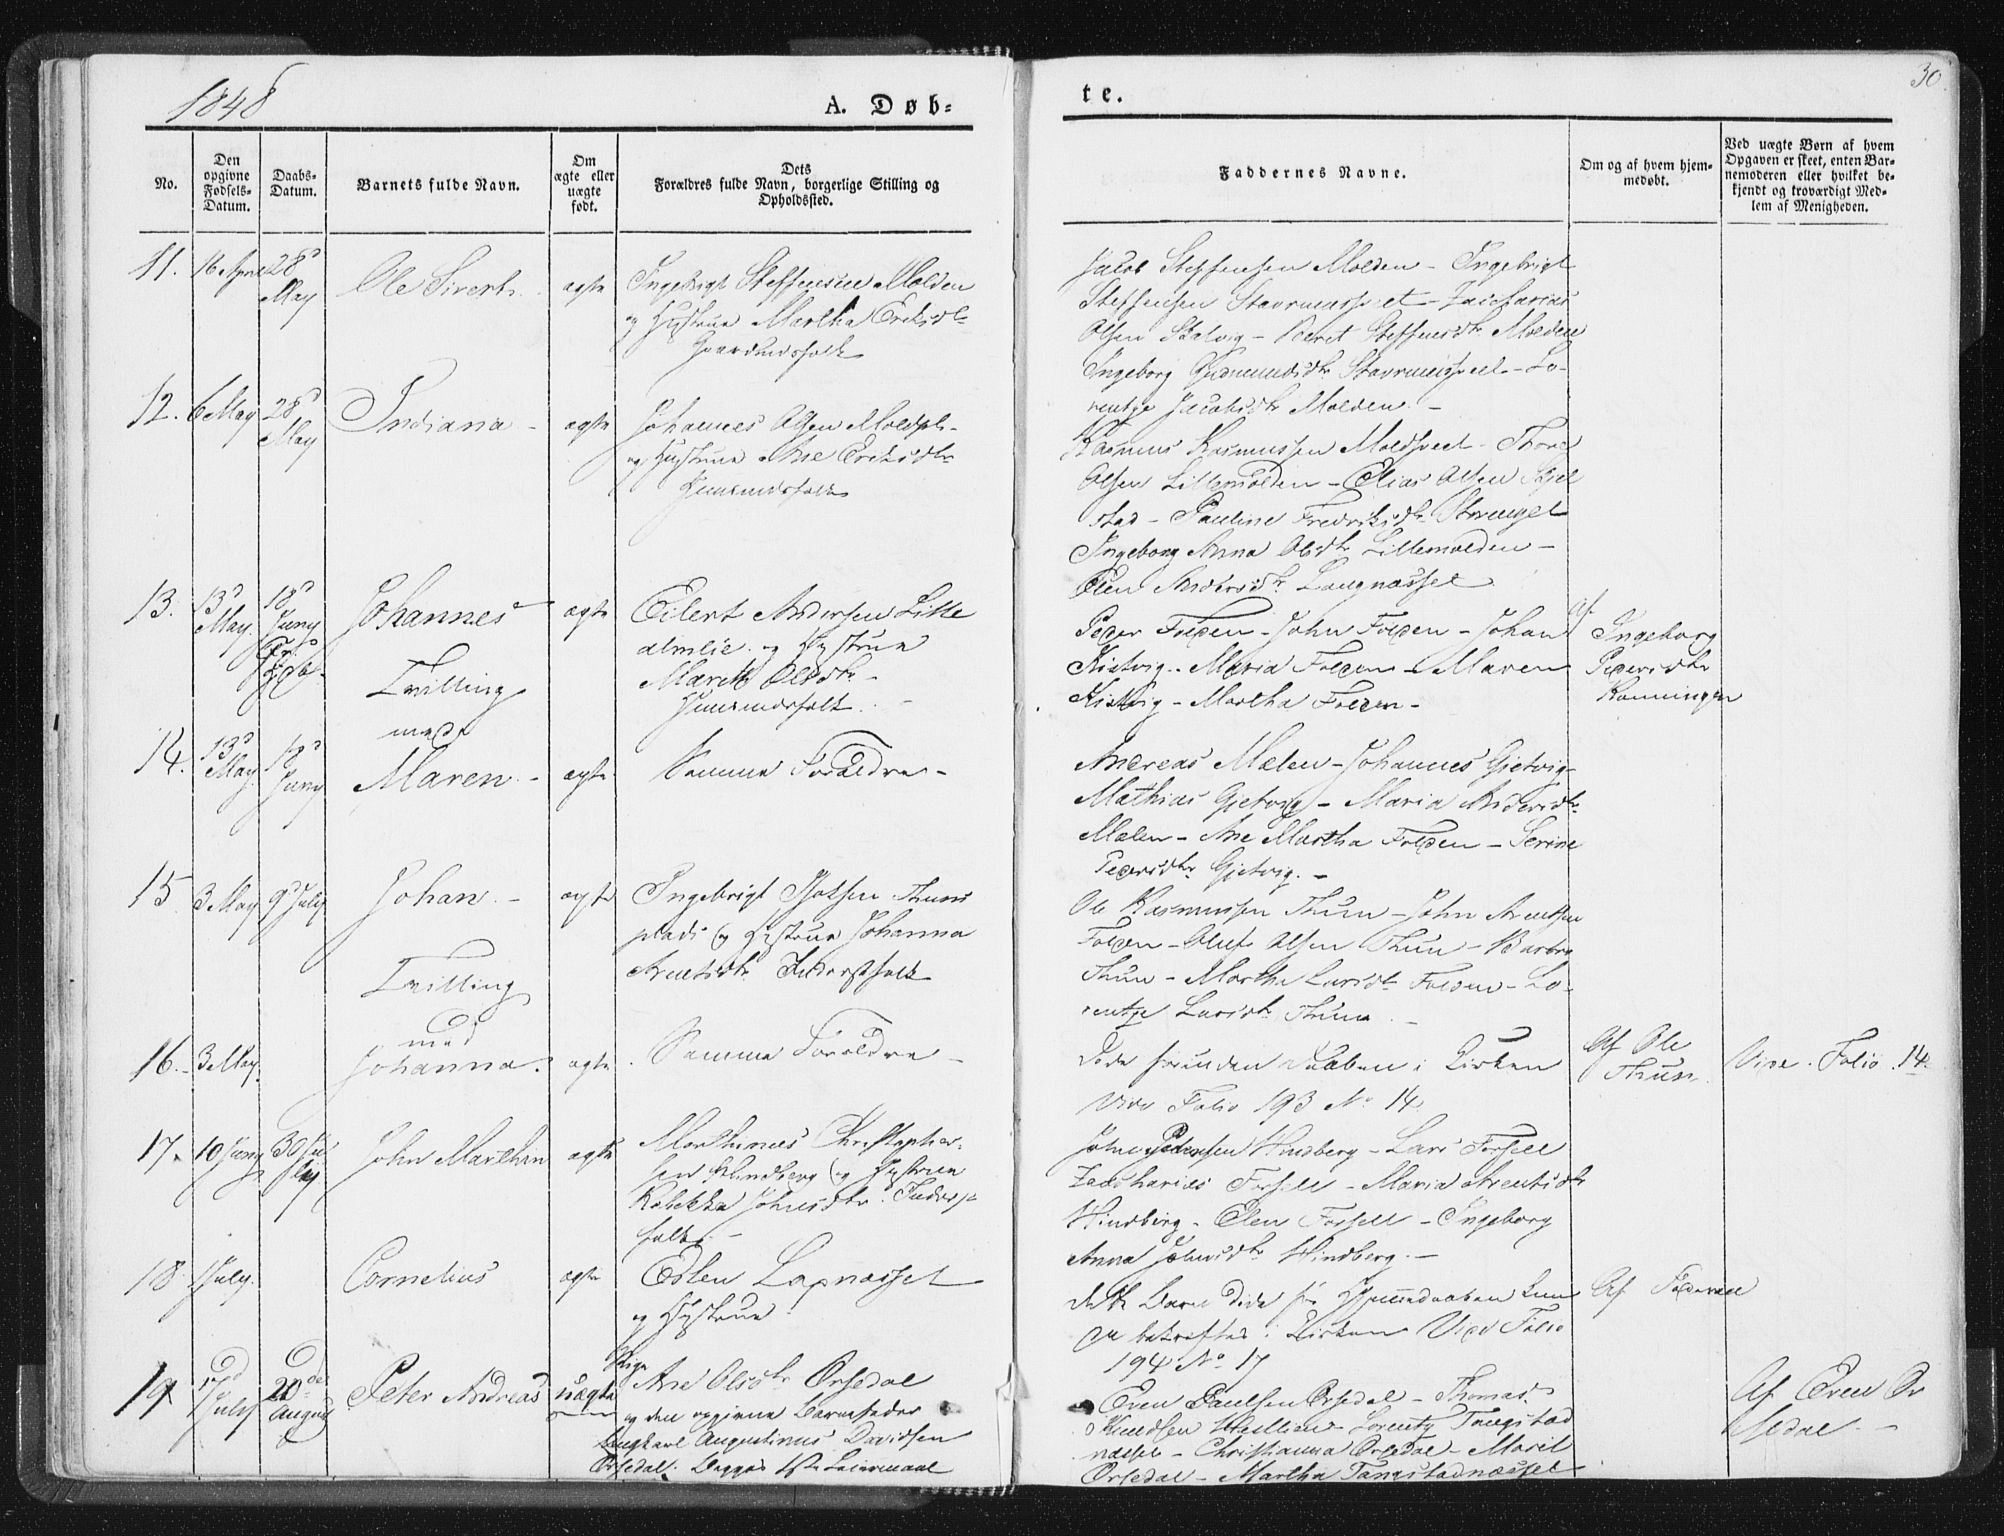 1848
A. Døb=
te.
30
No.
Den opgivne Fødsels-Datum.
Daabs-Datum.
Barnets fulde Navn.
Om ægte eller uægte født.
Dets Forældres fulde Navn, borgerlige Stilling og Opholdssted.
Faddernes Navne.
Om og af hvem hjem-
medøbt.
Ved uægte Børn af hvem
Opgaven er skeet, enten Bar-
nemoderen eller hvilket be-
kjendt og troværdigt Med-
lem af Menigheden.
11. 16 April 28d May Ole Sivert. ægte
Ingebrigt Steffensen Molden
og Hustrue Martha Eriksdtr
Gaardmdsfolk
Jacob Steffensen Molden - Ingebrigt
Steffensen - Zaicharias
Olsen - Beret Steffensdtr Molden
Ingeborg - Lo-
rentze Jacobsdtr Molden -
12. 6 May 28d May Indiana - ægte
Johannes Olsen
og Hustrue Ane Eriksdtr
Huusmdsfolk
Rasmus Rasmussen - Thore
Olsen Lillemolden - Elias Olsen Skjel
stad - Pauline Fredriksdtr
Ingeborg Anna Olsdtr Lillemolden -
Elen Andersdtr Langnæsset
13. 13d May. 18d Juny Johannes ægte
Tvilling
med
Eilert Andersen Lille
almlie og Hustrue
Marith Olsdtr -
Huusmdsfolk -
Peder Folden - John Folden - Johan
Kistvig - Maria Folden - Maren
Kistvig - Martha Folden -
af Ingeborg
Pedersdtr
14. 13d May 18d Juny Maren - ægte
Samme Forældre -
Andreas Mælen - Johannes Gjetvig -
Mathias Gjetvig - Maria Andersdtr
Mælen - Ane Martha Folden - Serine
Pedersdtr Gjetvig. -
15 3 May 9d July Johan - ægte
Tvilling
med
Ingebrigt Thuns
plads og Hustrue Johanna
Arntsdtr Inderstfolk
Ole Rasmussen Thun - John Arntsen
Folden - Oluf Olsen Thun - Barbro
Thun - Martha Larsdtr Folden - Lo-
rentze Larsdtr Thun -
16. 3 May. Johanna. ægte
Samme Forældre -
Døde forinden Daaben i Kirken
Vide Folio 193 No 14
Af Ole
Thun.
Vide Folio 14
17. 10 Juny 30 Ju
ly John Marthin ægte
Marthinus Christopher-
sen Hindberg og Hustrue
Rebekka Johnsdtr Inderst
folk -
John Pedersen Hindberg - Lars Forsell
Zacharias Forsell - Maria Arentsdtr
Hindberg - Elen Forsell - Ingeborg
Anna Johnsdtr Hindberg. -
18 July. Cornelius ægte
Edlen Lapnæsset
og Hustrue
dette Barn døde før Hjemmedaaben kun
de bekræftes i Kirken Vide Folio
194 No 17
Af Faderen
19 17d July 20de August Peter Andreas uægte
Pige
Ane Olsdtr Orsedal
og den opgivne Barnefader
Ungkarl Augustinus Davidsen
Orsedal. Begges 1ste Leiermaal
Even Paulsen Orsedal - Thomas
Knudsen - Lorentz Tangstad
næsset - Christianna Orsedal - Marit
Orsedal - Martha Tangstadnæsset
Af Even Or
sedal -